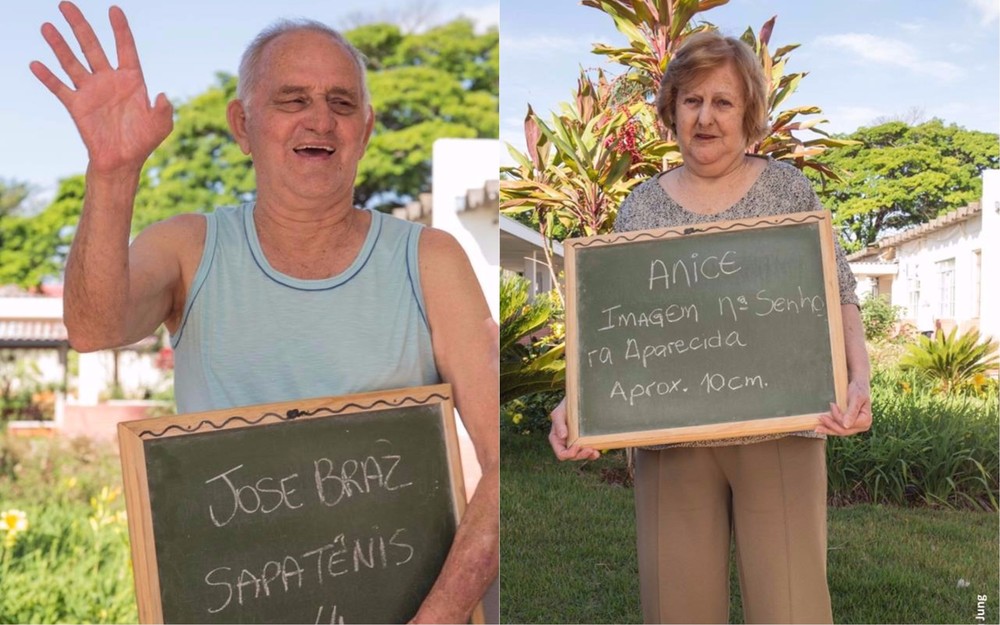 JOSE BRAZ
SAPATÊNIS
ANICE
IMAGEM Nª Senho
ra Aparecida
Aprox. 10cm.
Jung